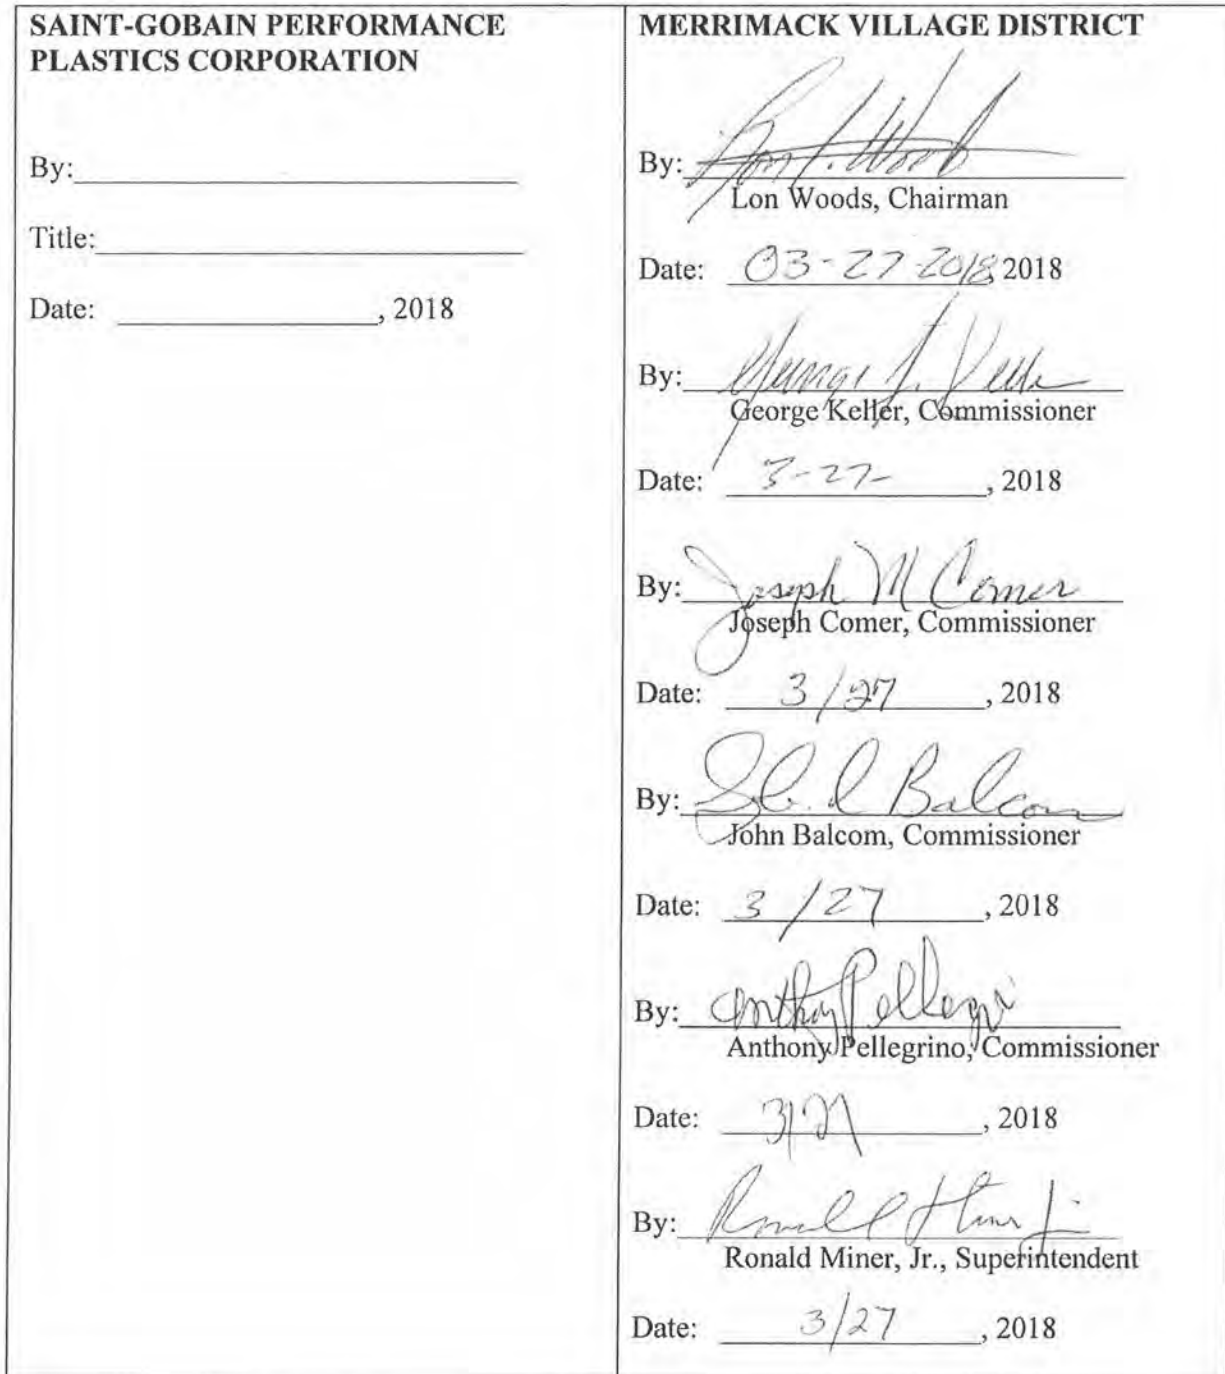 SAINT-GOBAIN PERFORMANCE
PLASTICS CORPORATION
By:
Title:
Date: , 2018
MERRIMACK VILLAGE DISTRICT
By:
Lon Woods, Chairman
Date: 03-27-2018, 2018
By:
George Keller, Commissioner
Date: 3-27- , 2018
By: Joseph M Comer
Joseph Comer, Commissioner
Date: 3/27 , 2018
By: Balcom
John Balcom, Commissioner
Date: 3/27 , 2018
By: Anthony
Anthony Pellegrino, Commissioner
Date: 3/27 , 2018
By: Ronald
Ronald Miner, Jr., Superintendent
Date: 3/27 , 2018